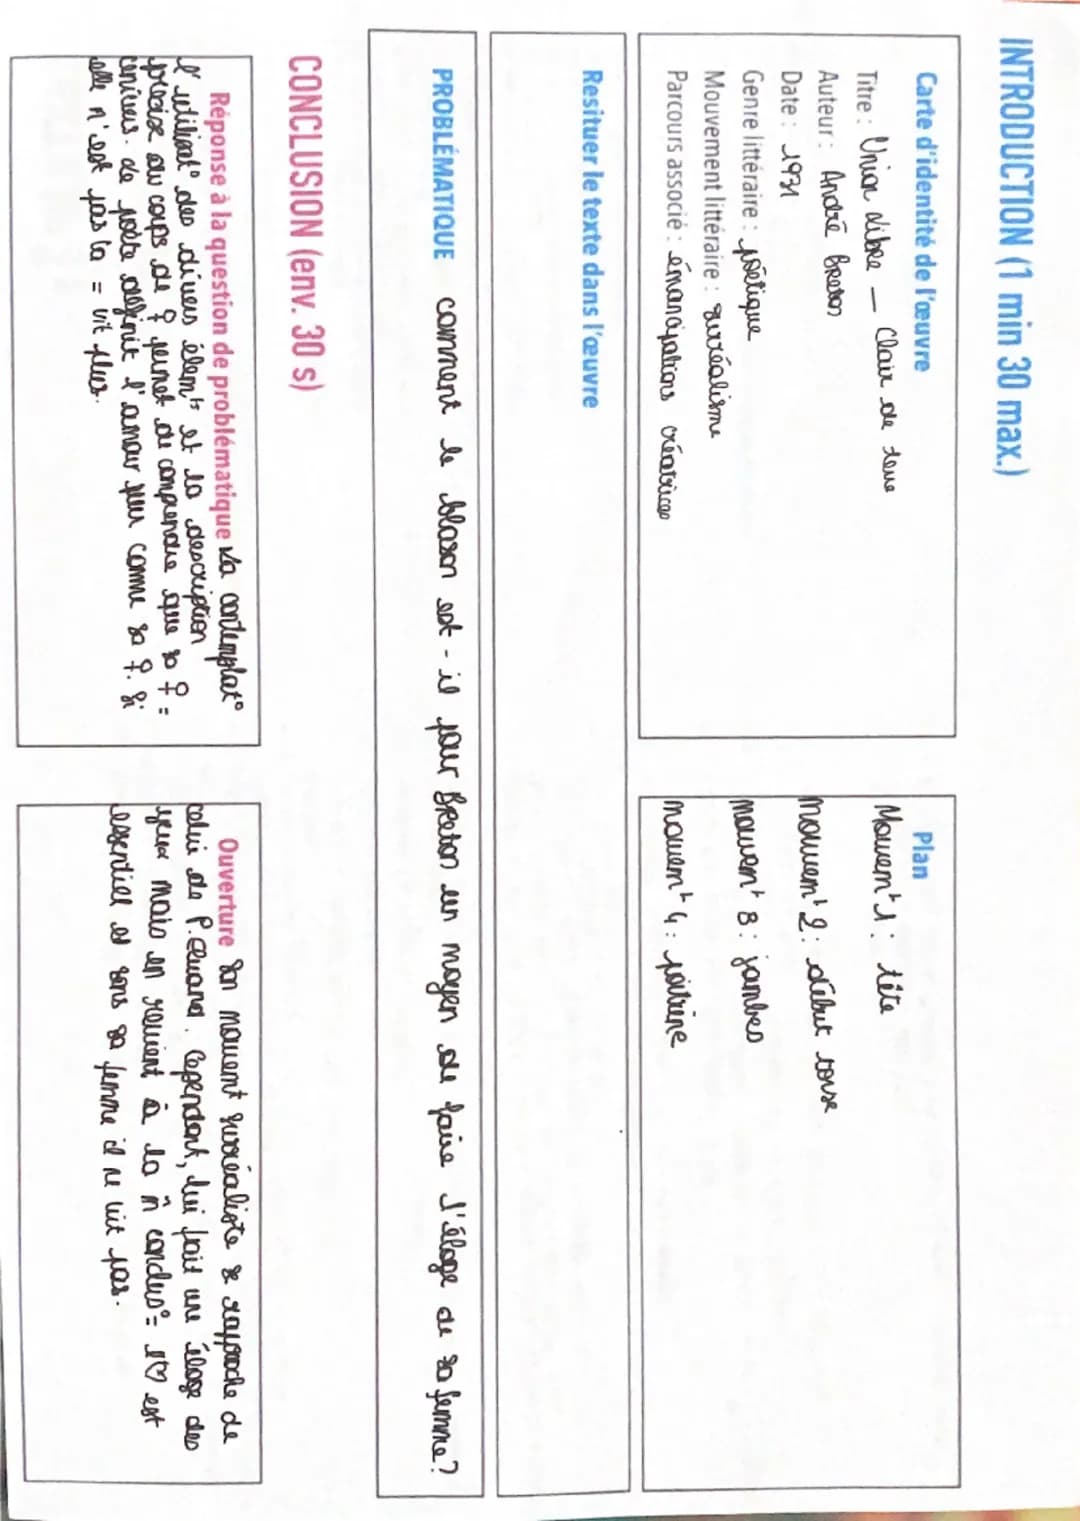 INTRODUCTION (1 min 30 max.)
Carte d'identité de l'œuvre
Titre : Union Libre — Clair de terre
Auteur : André Breton
Date : 1931
Genre littéraire : poétique
Mouvement littéraire : surréalisme
Parcours associé : émancipations créatrices
Plan
Mouvemt 1 : tête
Mouvemt 2 : début torse
Mouvemt 3 : jambes
Mouvemt 4 : poitrine
Resituer le texte dans l'œuvre
PROBLÉMATIQUE comment le blason est-il pour Breton un moyen de faire l'éloge de sa femme?
CONCLUSION (env. 30 s)
Réponse à la question de problématique La contemplat°
l'utilisat° des divers élemts et la description
précise du corps de ♀ permet de comprendre que sa ♀ =
univers. Le poète définit l'amour pur comme sa ♀. Si
elle n'est pas là = vit plus.
Ouverture Son mouvemt surréaliste se rapproche de
celui de P.Eluard. Cependant, lui fait une éloge des
yeux mais en revient à la m̂ conclus° = l'♡ est
essentiel et sans sa femme il ne vit pas.